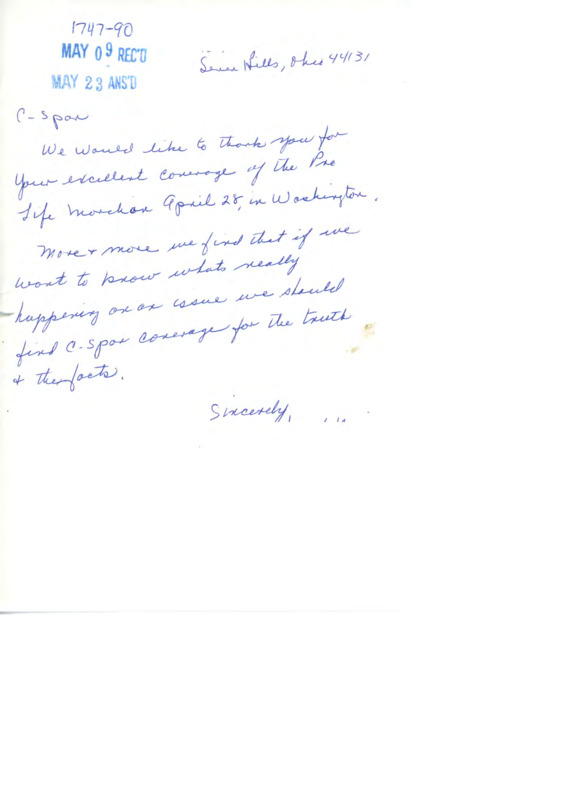 1747-90
MAY 09 REC'D
MAY 23 ANS'D
Seven Hills, Ohio 44131
C-Span
We would like to thank you for
your excellent coverage of the Pro
Life March on April 28, in Washington.
More + more we find that if we
want to know whats really
happening on an issue we should
find C-Span coverage for the truth
+ the facts.
Sincerely,